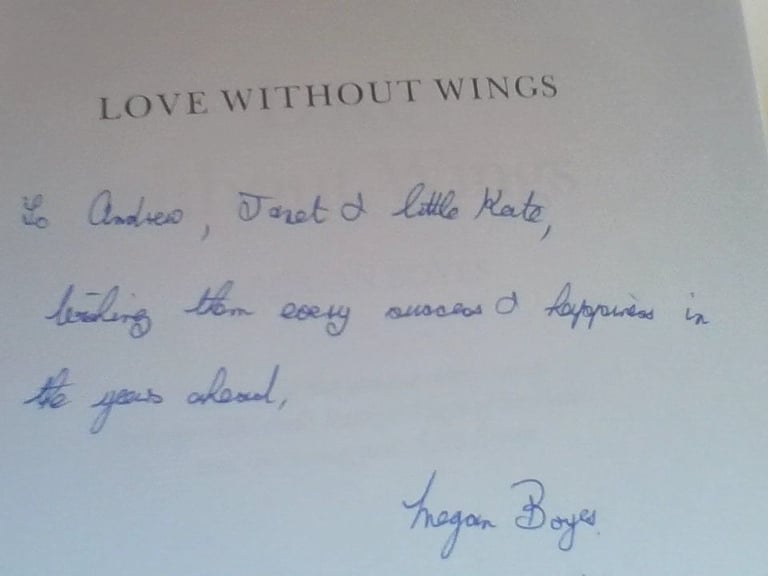 LOVE WITHOUT WINGS
To Andrew, Janet & little Kate,
Wishing them every success & happiness in
the years ahead,
Megan Boyes.